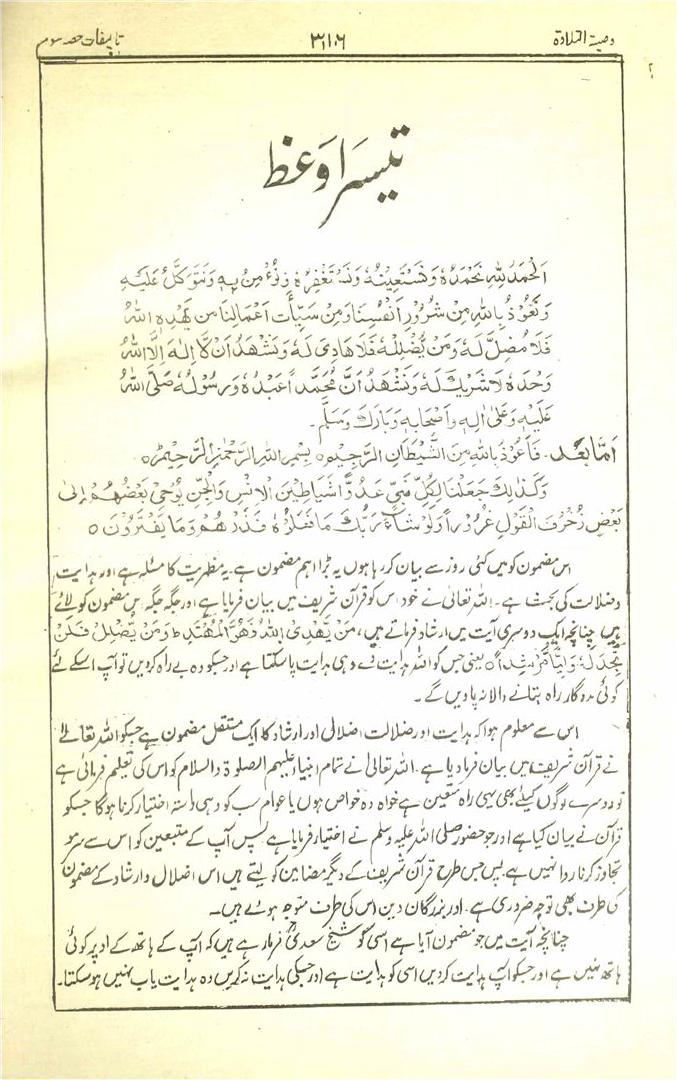 وصیۃ التلاوۃ
۳۱۰۶
تالیفات حصہ سوم
تیسرا وعظ
اَلْحَمْدُ لِلّٰهِ نَحْمَدُهٗ وَنَسْتَعِيْنُهٗ وَنَسْتَغْفِرُهٗ وَنُؤْمِنُ بِهٖ وَنَتَوَكَّلُ عَلَيْهِ
وَنَعُوْذُ بِاللّٰهِ مِنْ شُرُوْرِ اَنْفُسِنَا وَمِنْ سَيِّاٰتِ اَعْمَالِنَا مَنْ يَّهْدِهِ اللّٰهُ
فَلَا مُضِلَّ لَهٗ وَمَنْ يُّضْلِلْهُ فَلَا هَادِيَ لَهٗ وَنَشْهَدُ اَنْ لَّا اِلٰهَ اِلَّا اللّٰهُ
وَحْدَهٗ لَا شَرِيْكَ لَهٗ وَنَشْهَدُ اَنَّ مُحَمَّدًا عَبْدُهٗ وَرَسُوْلُهٗ صَلَّى اللّٰهُ
عَلَيْهِ وَعَلٰى اٰلِهٖ وَاَصْحَابِهٖ وَبَارَكَ وَسَلَّمَ۔
اَمَّا بَعْد۔ فَاَعُوْذُ بِاللّٰهِ مِنَ الشَّيْطَانِ الرَّجِيْمِ ہ بِسْمِ اللّٰهِ الرَّحْمٰنِ الرَّحِيْمِ ہ
وَكَذٰلِكَ جَعَلْنَا لِكُلِّ نَبِيٍّ عَدُوًّا شَيَاطِيْنَ الْاِنْسِ وَالْجِنِّ يُوْحِيْ بَعْضُهُمْ اِلٰى
بَعْضٍ زُخْرُفَ الْقَوْلِ غُرُوْرًا وَلَوْ شَاءَ رَبُّكَ مَا فَعَلُوْهُ فَذَرْهُمْ وَمَا يَفْتَرُوْنَ ہ
اس مضمون کو میں کئی روز سے بیان کر رہا ہوں یہ بڑا اہم مضمون ہے۔ یہ مظہریت کا مسئلہ ہے اور ہدایت
وضلالت کی بحث ہے۔ اللہ تعالیٰ نے خود اس کو قرآن شریف میں بیان فرمایا ہے اور جگہ جگہ اس مضمون کو لائے
ہیں چنانچہ ایک دوسری آیت میں ارشاد فرماتے ہیں، مَنْ يَّهْدِى اللّٰهُ فَهُوَ الْمُهْتَدِ وَمَنْ يُّضْلِلْ فَلَنْ
تَجِدَ لَهٗ وَلِيًّا مُّرْشِدًا ہ یعنی جس کو اللہ ہدایت دے وہی ہدایت پا سکتا ہے اور جسکو وہ بے راہ کر دیں تو آپ اسکے لئے
کوئی مددگار راہ بتانے والا نہ پاویں گے۔
اس سے معلوم ہوا کہ ہدایت اور ضلالت اضلال اور ارشاد کا ایک مستقل مضمون ہے جسکو اللہ تعالےٰ
نے قرآن شریف میں بیان فرما دیا ہے۔ اللہ تعالیٰ نے تمام انبیاء علیہم الصلوٰۃ والسلام کو اس کی تعلیم فرمائی ہے
تو دوسرے لوگوں کیلئے بھی یہی راہ متعین ہے خواہ وہ خواص ہوں یا عوام سب کو وہی راستہ اختیار کرنا ہوگا جسکو
قرآن نے بیان کیا ہے اور جو حضور صلی اللہ علیہ وسلم نے اختیار فرمایا ہے پس آپ کے متبعین کو اس سے سرمو
تجاوز کرنا روا نہیں ہے پس جس طرح قرآن شریف کے دیگر مضامین کو لیتے ہیں اس اضلال وارشاد کے مضمون
کی طرف بھی توجہ ضروری ہے۔ اور بزرگان دین اس کی طرف متوجہ ہوئے ہیں۔
چنانچہ آیت میں جو مضمون آیا ہے اسی کو شیخ سعدیؒ فرما رہے ہیں کہ آپ کے ہاتھ کے اوپر کوئی
ہاتھ نہیں ہے اور جسکو آپ ہدایت کر دیں اسی کو ہدایت ہے اور جسکی ہدایت نہ کریں وہ ہدایت یاب نہیں ہو سکتا۔